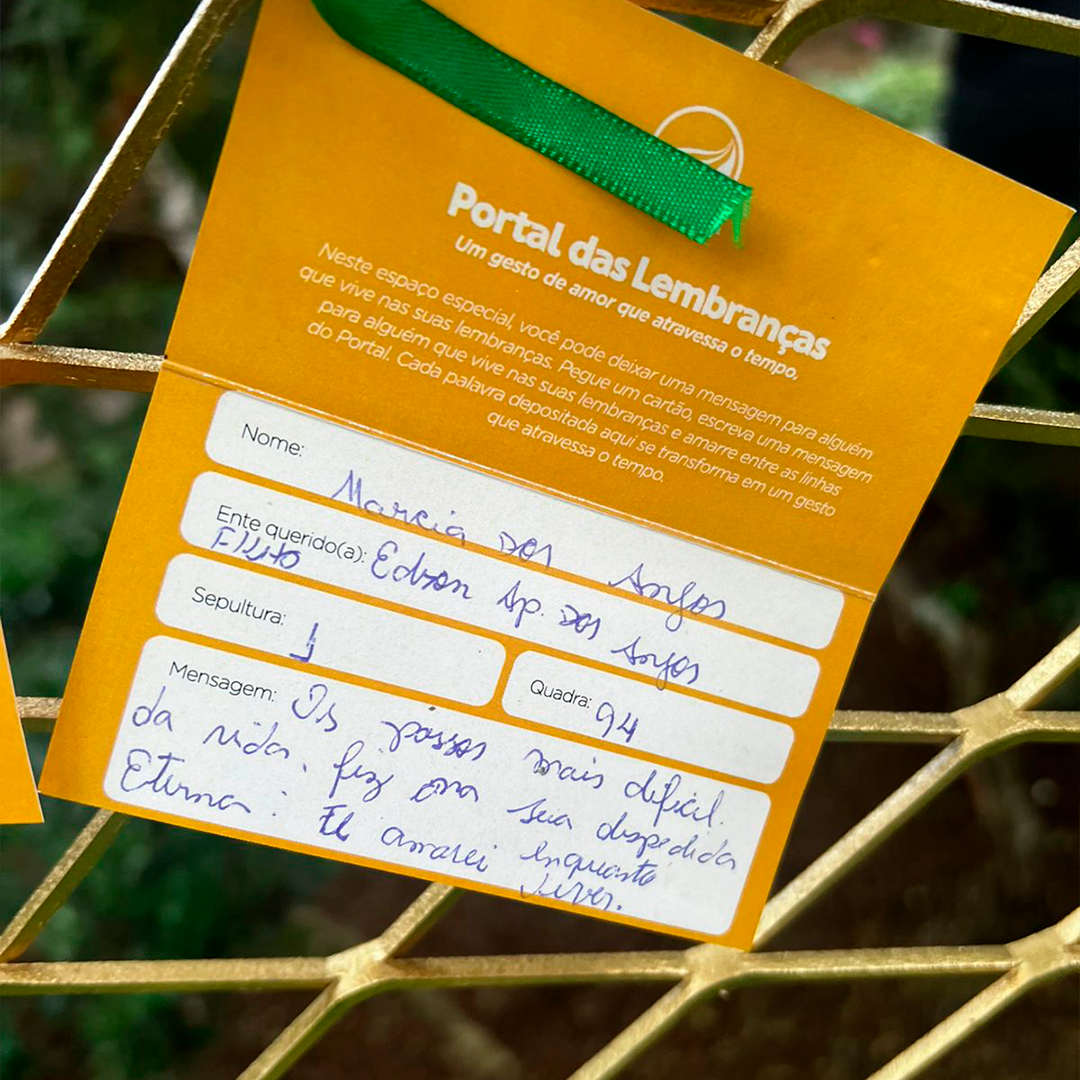 Portal das Lembranças
Um gesto de amor que atravessa o tempo.
Neste espaço especial, você pode deixar uma mensagem para alguém
que vive nas suas lembranças. Pegue um cartão, escreva uma mensagem
para alguém que vive nas suas lembranças e amarre entre as linhas
do Portal. Cada palavra depositada aqui se transforma em um gesto
que atravessa o tempo.
Nome: Marcia dos Anjos
Ente querido(a): Edson Ap. dos Anjos
Filho
Sepultura: 1
Quadra: 94
Mensagem: Os passos mais dificil.
da vida. fiz na sua despedida
Eterna: Te amarei enquanto
viver.